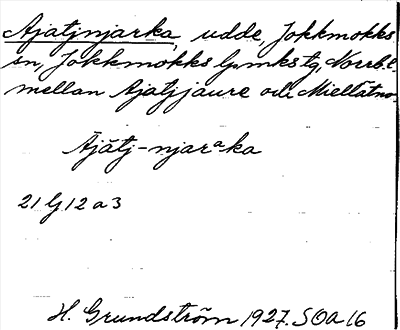 Ajatjnjarka, udde, Jokkmokks
sn, Jokkmokks lpmks tg, Norrb. l.
mellan Ajatjjaure och Miellätno.
Ájătj-njarᵃka
21 G 12 a 3
H. Grundström 1927. SOA 16